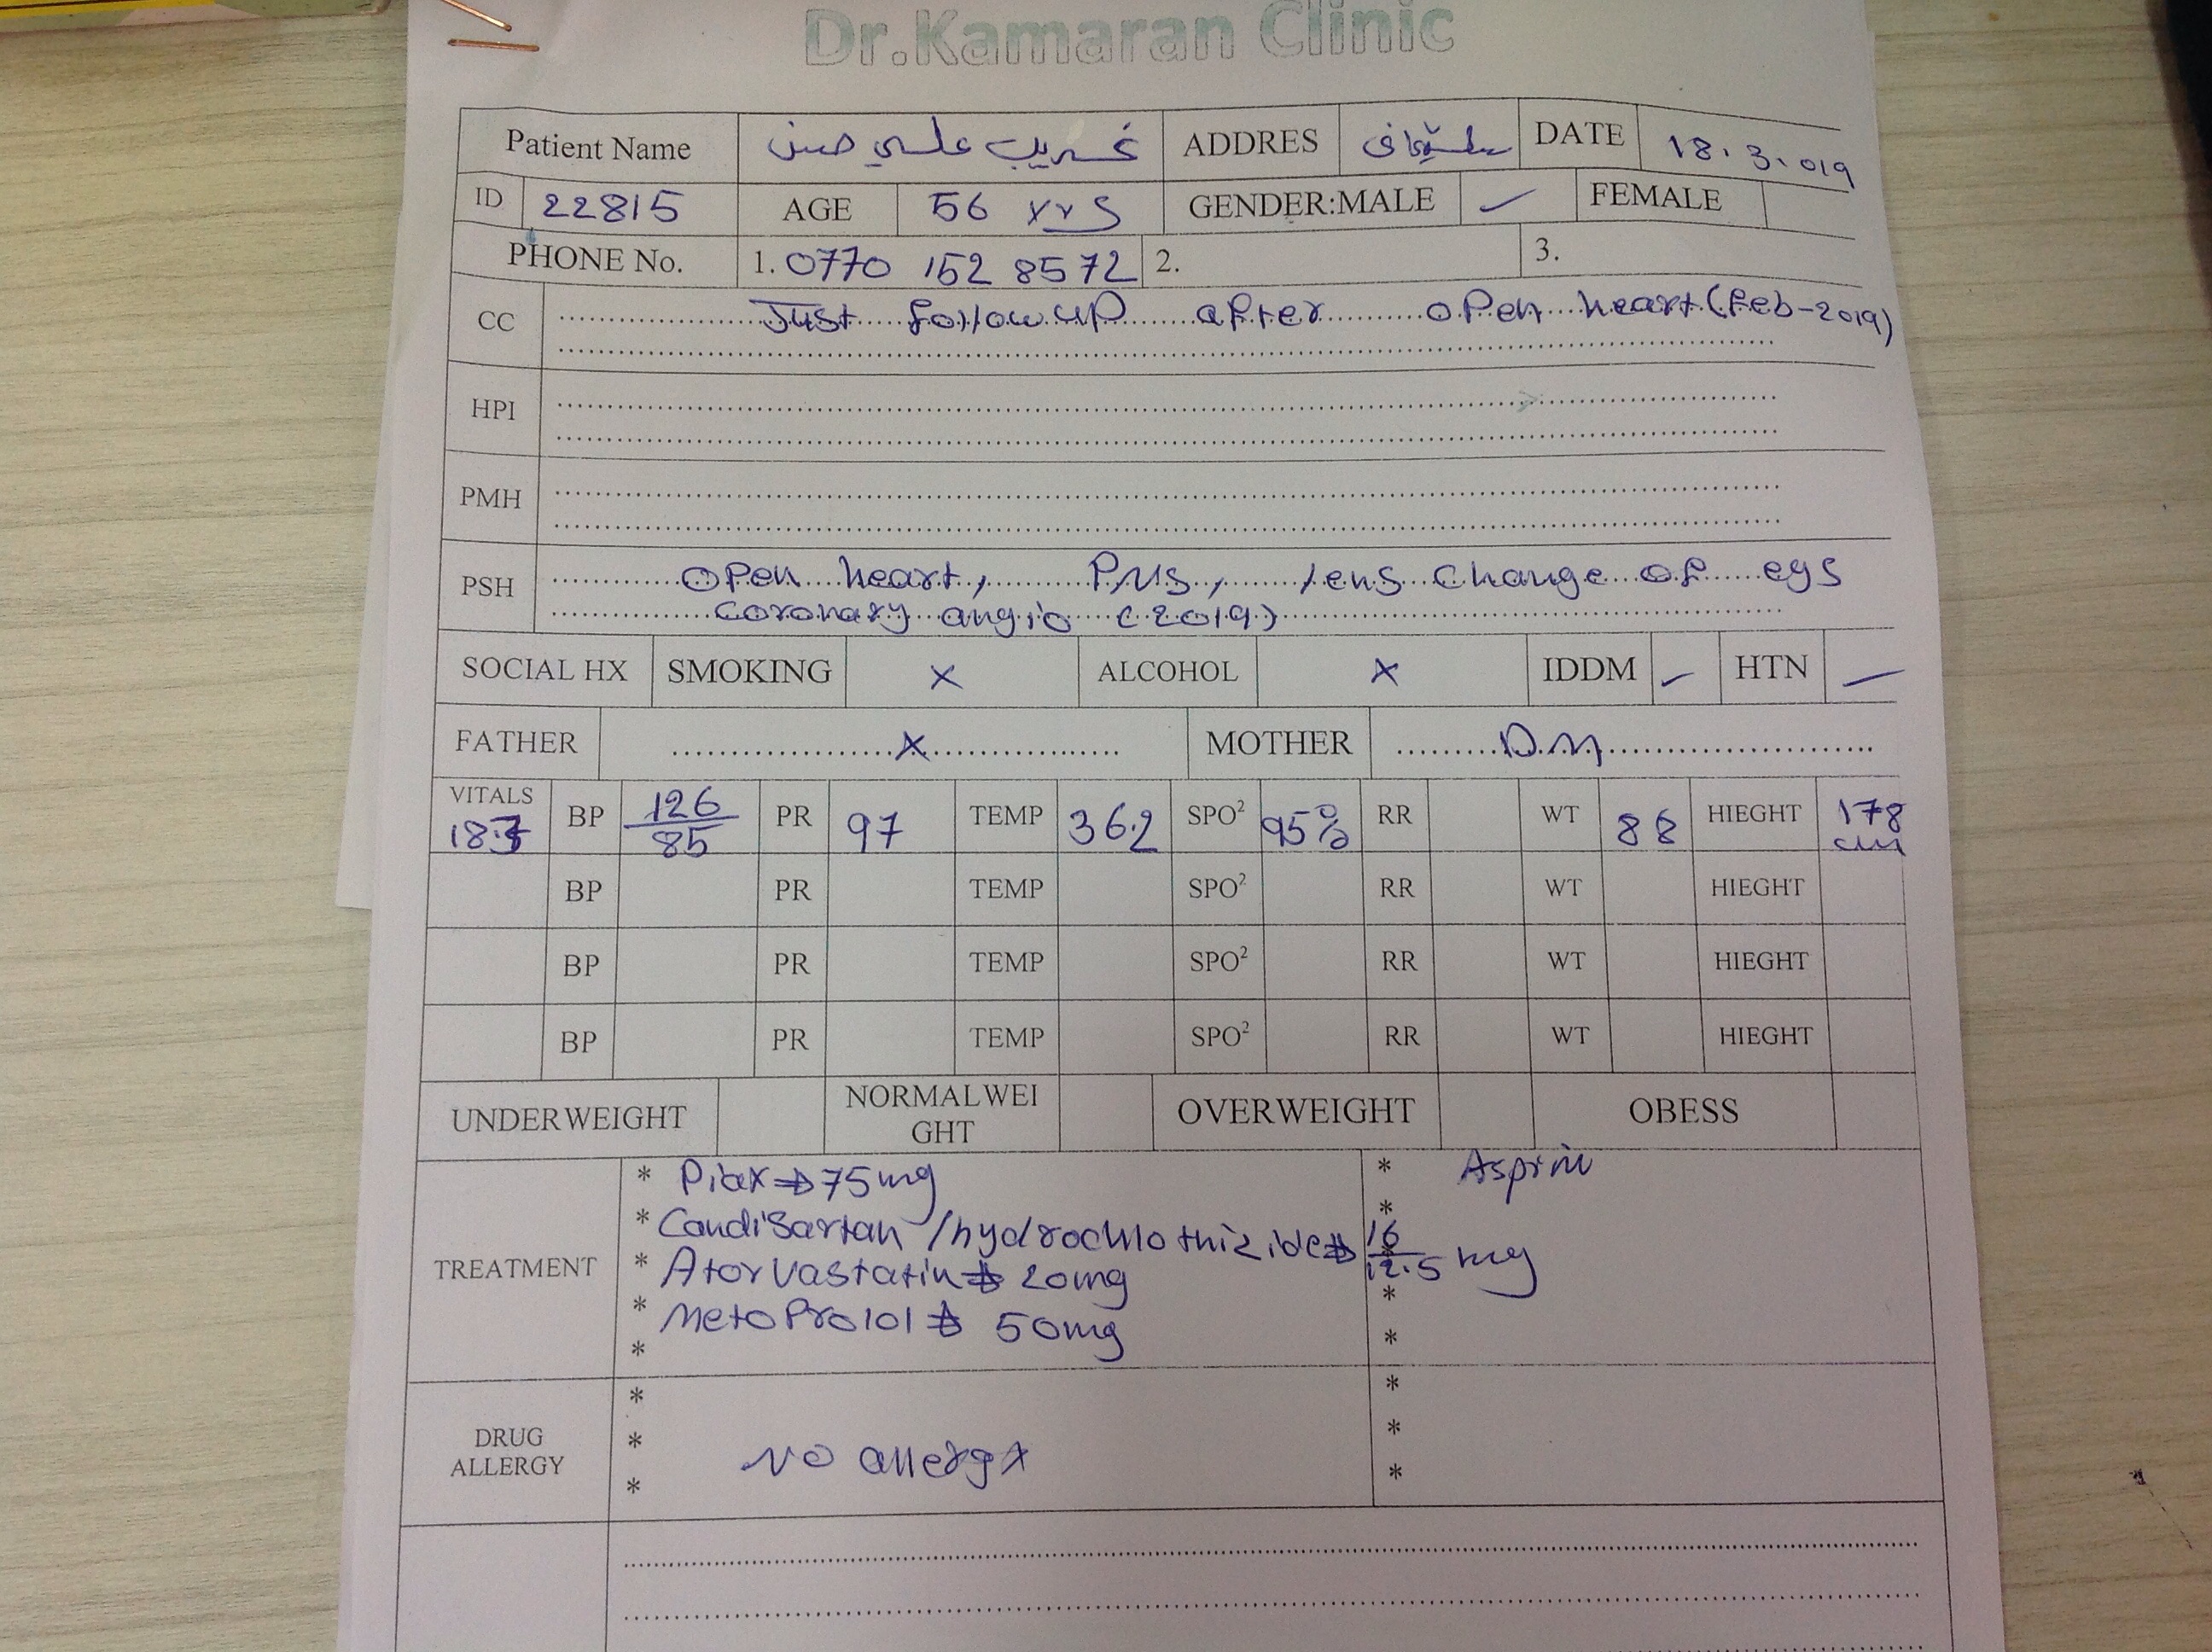 Dr.Kamaran Clinic
Patient Name غريب علي حسن ADDRES DATE 18.3.019
ID 22815 AGE 56 yrs GENDER:MALE ✓ FEMALE
PHONE No. 1. 0770 152 8572 2. 3.
CC Just follow up after open heart (Feb-2019)
HPI
PMH
PSH open heart, PNS, lens change of eys
coronary angio (2019)
SOCIAL HX SMOKING × ALCOHOL × IDDM ✓ HTN ✓
FATHER × MOTHER D.M
VITALS 18.3 BP 126/85 PR 97 TEMP 36.2 SPO² 95% RR WT 88 HIEGHT 178 cm
BP PR TEMP SPO² RR WT HIEGHT
BP PR TEMP SPO² RR WT HIEGHT
BP PR TEMP SPO² RR WT HIEGHT
UNDERWEIGHT NORMALWEI
GHT OVERWEIGHT OBESS
TREATMENT
* Plax → 75mg * Asprin
* Candisartan / hydrochlothizide → 16/12.5 mg
* Atorvastatin → 20mg
* Metoprolol → 50mg
*
DRUG
ALLERGY
* No allergy